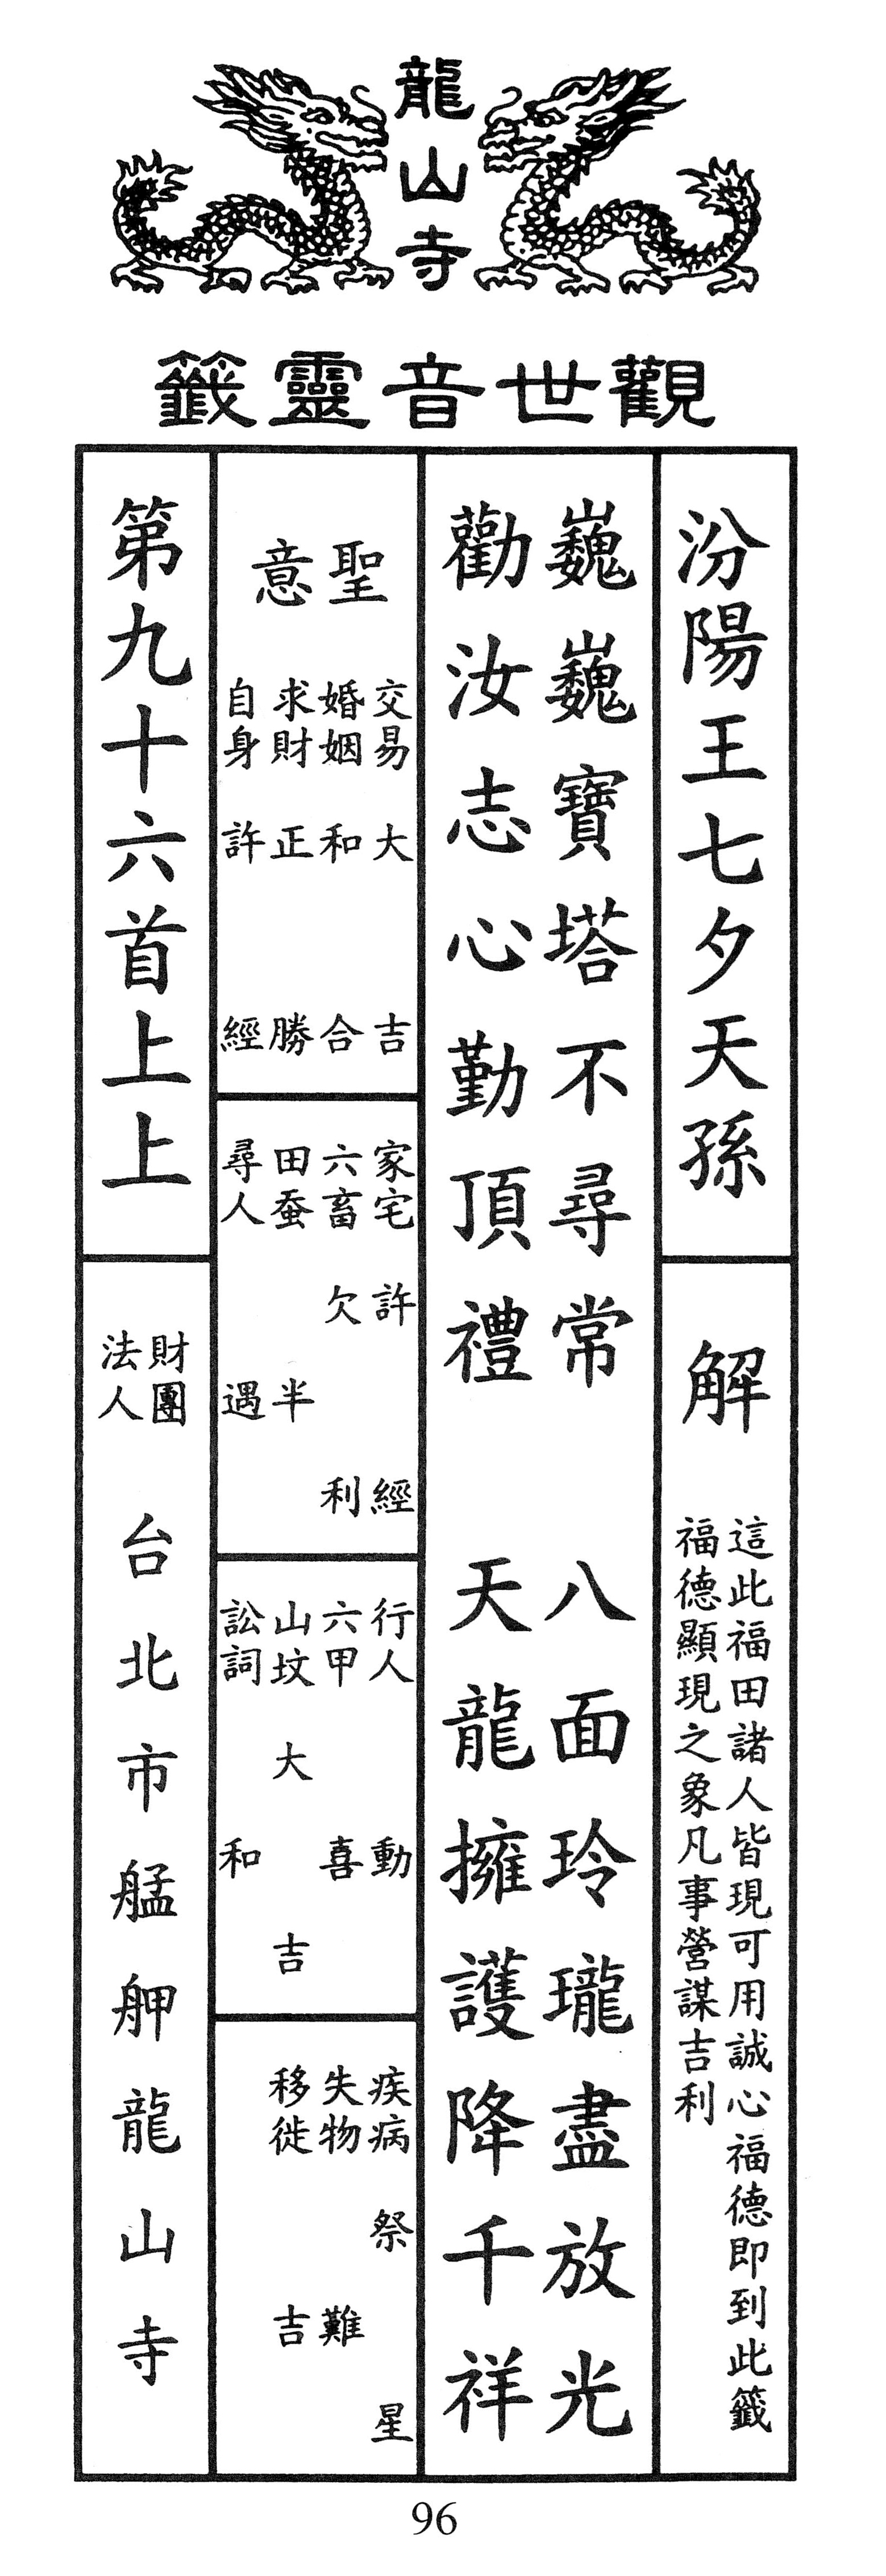 龍山寺
觀世音靈籤
汾陽王七夕天孫
解
這此福田諸人皆現可用誠心福德即到此籤
福德顯現之象凡事營謀吉利
巍巍寶塔不尋常 八面玲瓏盡放光
勸汝志心勤頂禮 天龍擁護降千祥
聖意
交易 大吉
婚姻 和合
求財 正勝
自身 許經
家宅 許經
六畜 欠利
田蚕 半
尋人 遇
行人 動
六甲 喜
山坟 大吉
訟詞 和
疾病 祭星
失物 難
移徙 吉
第九十六首上上
財團法人
台北市艋舺龍山寺
96